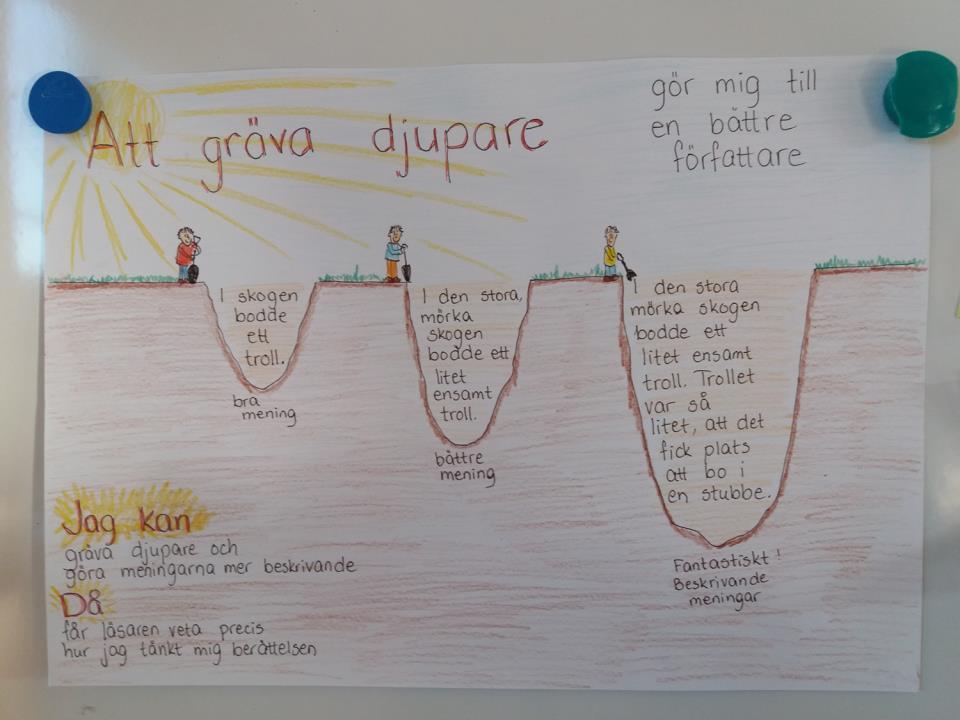 Att gräva djupare
gör mig till
en bättre
författare
I skogen
bodde
ett
troll.
bra
mening
I den stora,
mörka
skogen
bodde ett
litet
ensamt
troll.
bättre
mening
I den stora
mörka skogen
bodde ett
litet ensamt
troll. Trollet
var så
litet, att det
fick plats
att bo i
en stubbe.
Fantastiskt!
Beskrivande
meningar
Jag kan
gräva djupare och
göra meningarna mer beskrivande
Då
får läsaren veta precis
hur jag tänkt mig berättelsen